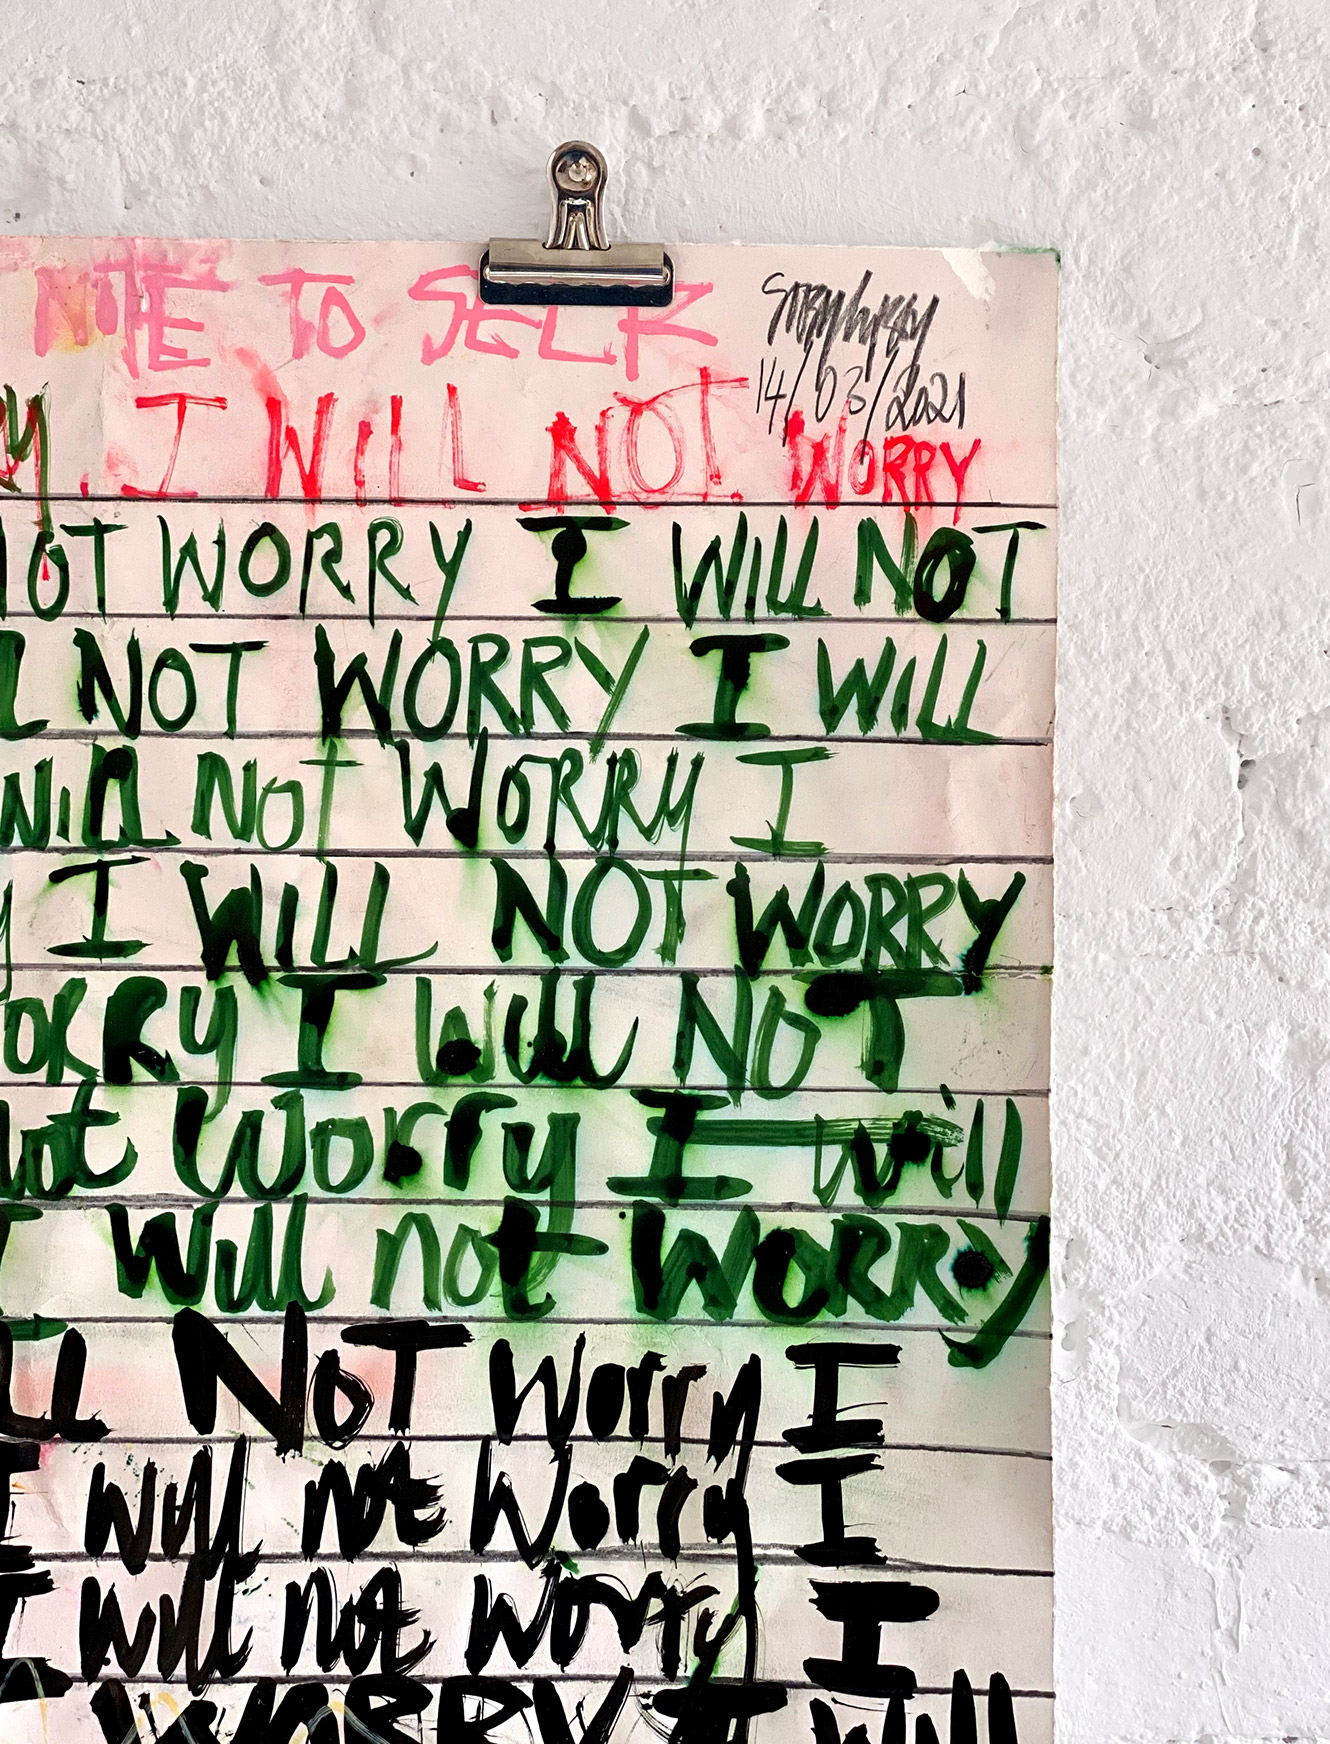 NOTE TO SELF
14/03/2021
. I WILL NOT WORRY
NOT WORRY I WILL NOT
NOT WORRY I WILL
Will NOT WORRY I
I WILL NOT WORRY
ORRY I Will NOT
not Worry I will
I Will not WORRY
ILL NOT Worry I
I will not Worry I
I will not Worry I
WORRY I Will